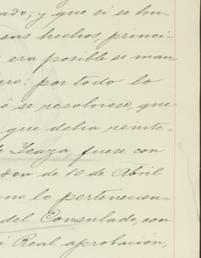 ado; y que si se hu-
sus hechos, princi-
era posible se man
ero: por todo lo
ó se resolviese, que
que debia reinte-
Icaza, fuese con
den de 10 de Abril
no lo pertenecien-
del Consulado, con
i Real aprobación,